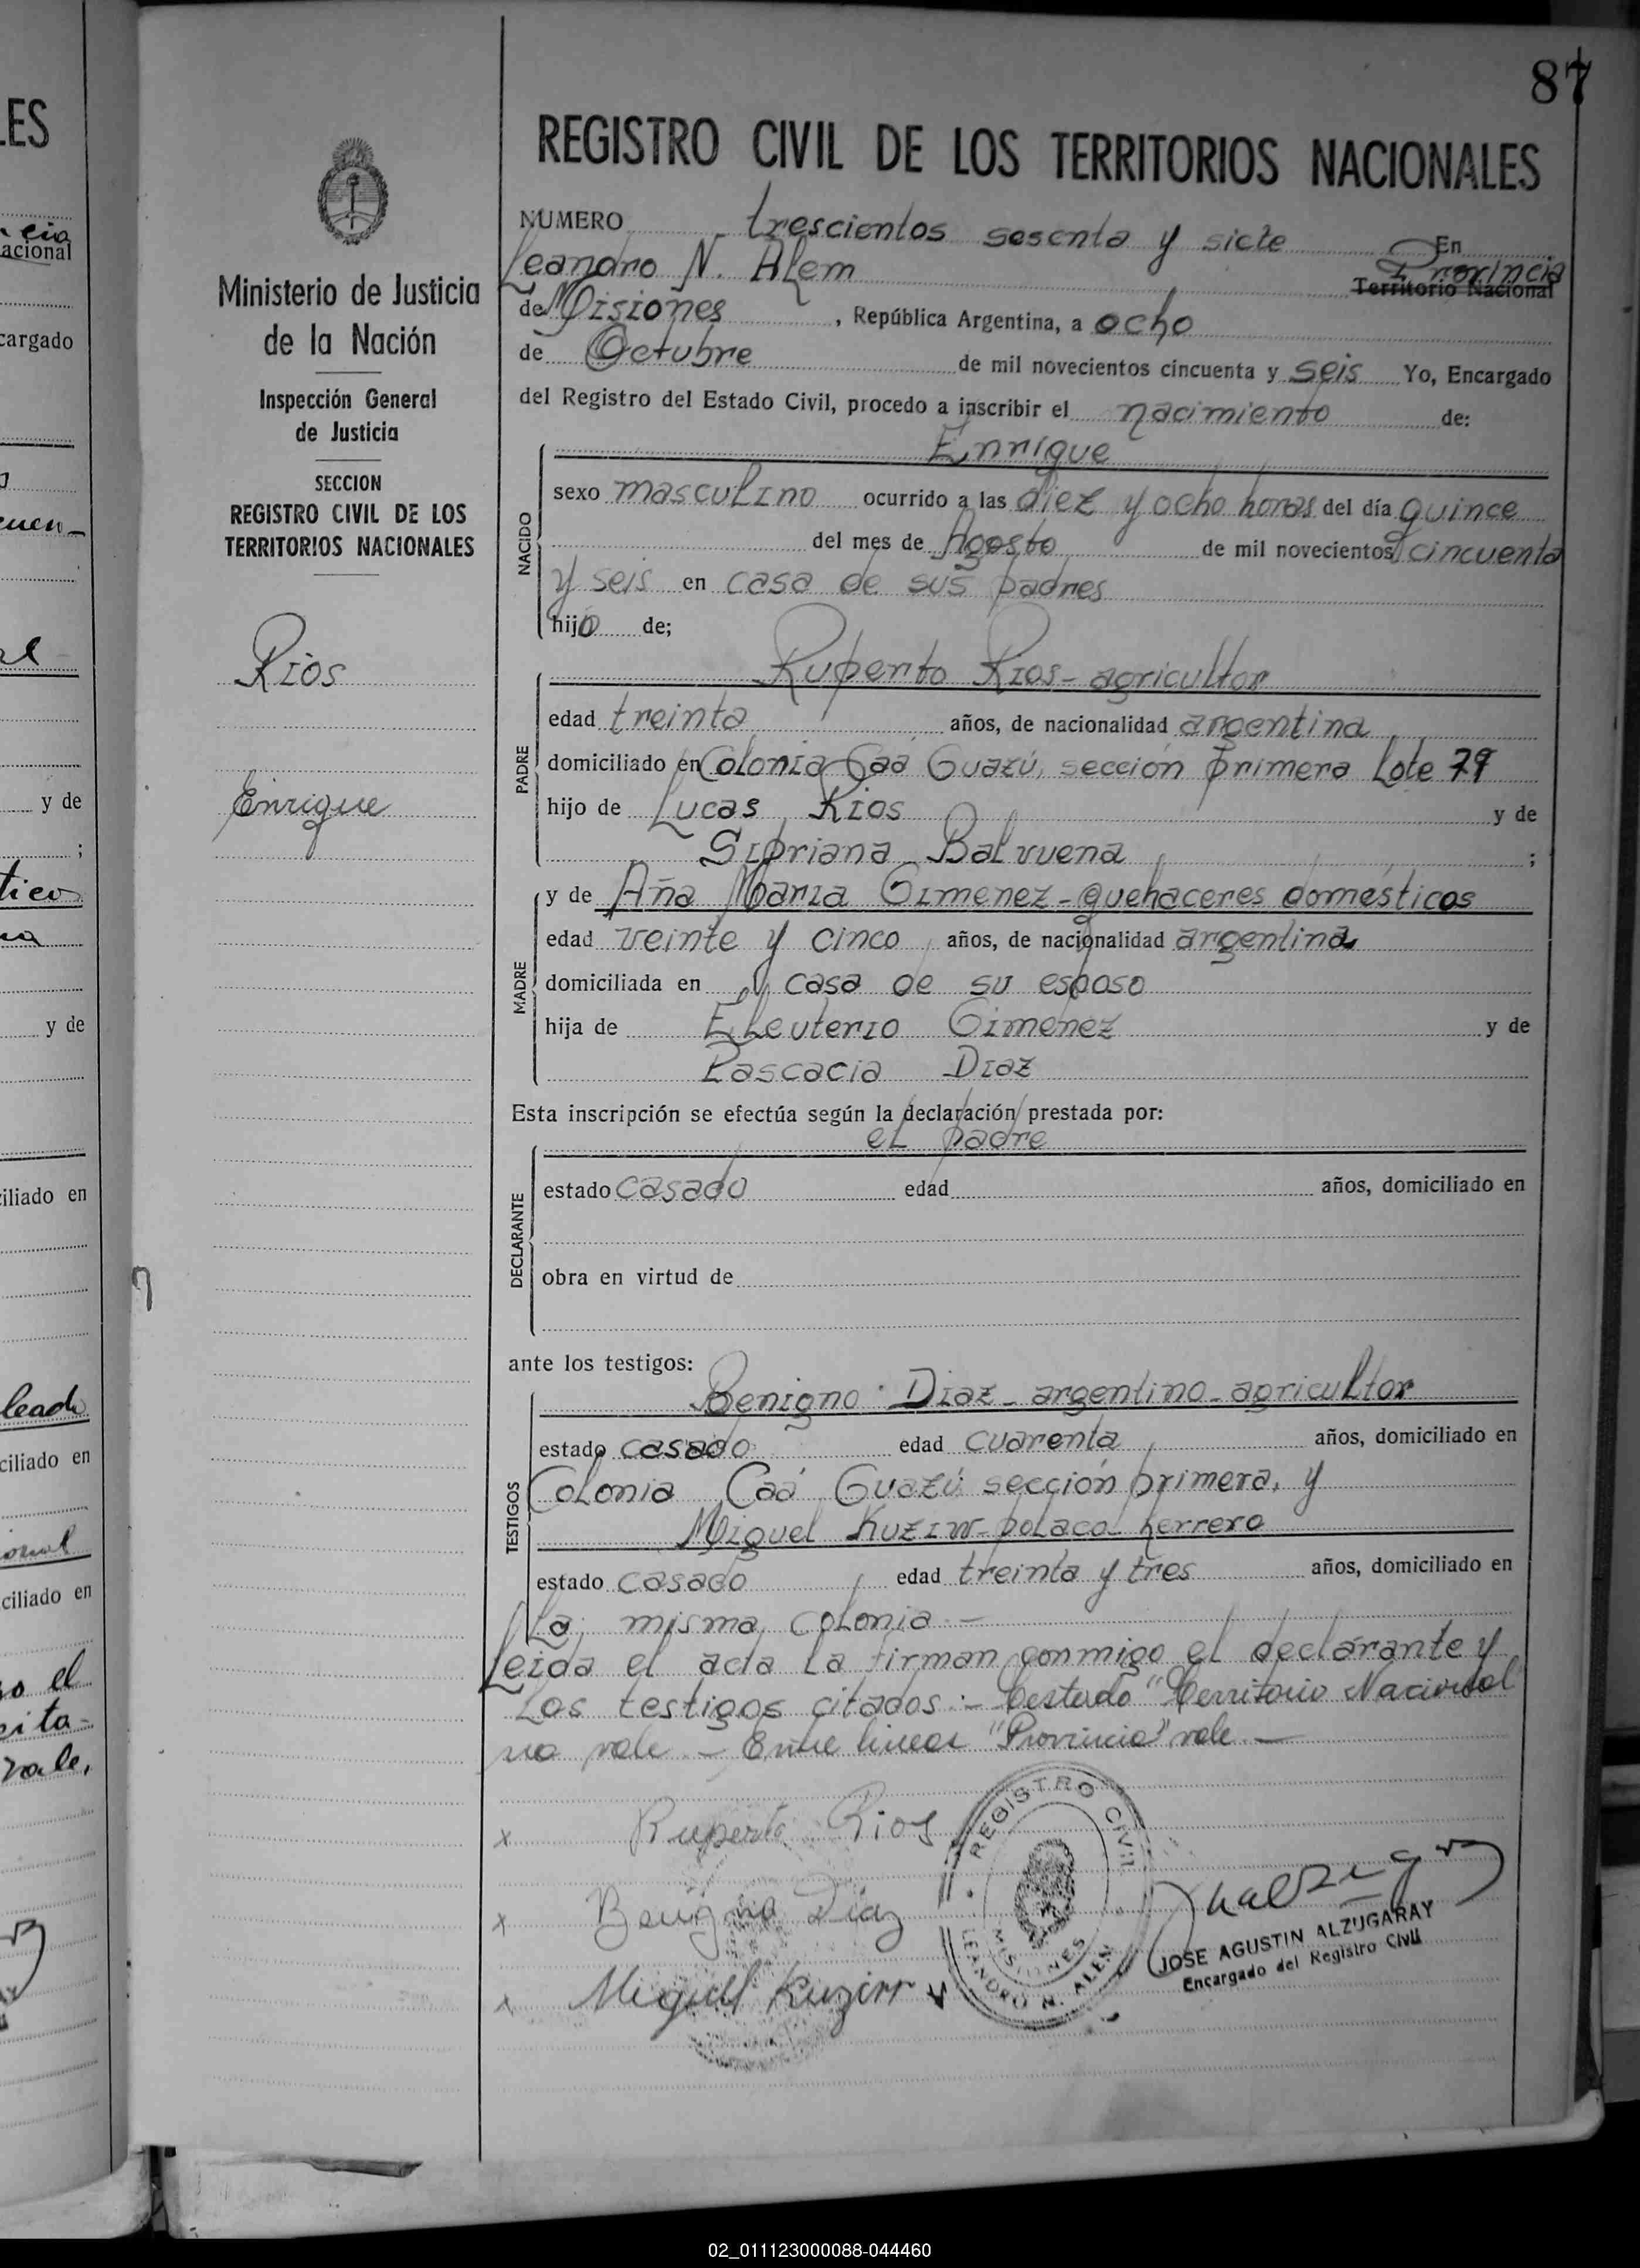 87
REGISTRO CIVIL DE LOS TERRITORIOS NACIONALES
NUMERO trescientos sesenta y siete En
Leandro N. Alem Provincia
Territorio Nacional
de Misiones, República Argentina, a ocho
de Octubre de mil novecientos cincuenta y seis Yo, Encargado
del Registro del Estado Civil, procedo a inscribir el nacimiento de:
Enrique
NACIDO
sexo masculino ocurrido a las diez y ocho horas del día quince
del mes de Agosto de mil novecientos cincuenta
y seis en casa de sus padres
hijo de;
Ruperto Rios - agricultor
PADRE
edad treinta años, de nacionalidad argentina
domiciliado en Colonia Caá Guazú, sección primera Lote 79
hijo de Lucas Rios y de
Sipriana Balvuena ;
MADRE
y de Ana Maria Gimenez - quehaceres domésticos
edad veinte y cinco años, de nacionalidad argentina
domiciliada en casa de su esposo
hija de Eleuterio Gimenez y de
Pascacia Diaz
Esta inscripción se efectúa según la declaración prestada por:
el padre
DECLARANTE
estado casado edad años, domiciliado en
obra en virtud de
ante los testigos:
TESTIGOS
Benigno Diaz - argentino - agricultor
estado casado edad cuarenta años, domiciliado en
Colonia Caá Guazú sección primera, y
Miguel Kuziw - polaco - herrero
estado casado edad treinta y tres años, domiciliado en
La misma colonia -
Leida el acta la firman conmigo el declarante y
Los testigos citados:- Testado "Territorio Nacional
no vale - Entre lineas "Provincia" vale -
x Ruperto Rios
x Benigno Diaz
x Miguel
REGISTRO CIVIL
MISIONES
LEANDRO N. ALEM
JOSE AGUSTIN ALZUGARAY
Encargado del Registro Civil
Ministerio de Justicia
de la Nación
Inspección General
de Justicia
SECCION
REGISTRO CIVIL DE LOS
TERRITORIOS NACIONALES
Rios
Enrique
02_011123000088-044460